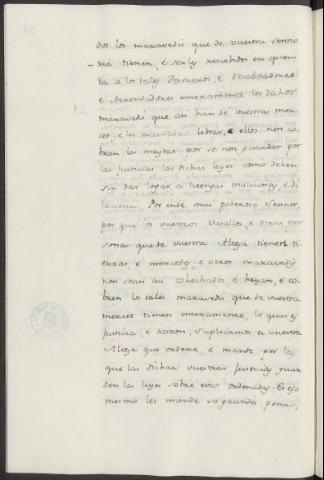 dos los maravedis que de vuestra Senno
ria tienen, é ser les recebidos en quen
ta á los tales Thesoreros, é Recabdadores
é Arrendadores enteramente los dichos
maravedis que asi han de vuestra mer
cet, é les mandades librar, é ellos non co
bran la meytat por se non guardar por
las justicias las dichas leyes como deben
sin dar logar á luengas malicias, é di
laciones. Por ende mui poderoso Sennor,
por que los vuestros Vasallos, é otras per
sonas que de vuestra Alteza tienen ti
erras, é mercedes, é otros maravedis
non sean asi cohechados, é hayan, é co
bren los tales maravedis que de vuestra
mercet tienen enteramente, lo qual es
justicia, é razon, Suplicamos á vuestra
Alteza que ordene, é mande por ley
que las dichas vuestras Justicias guar
den las leyes sobre esto ordenadas. Et eso
mesmo les mande so grandes penas,